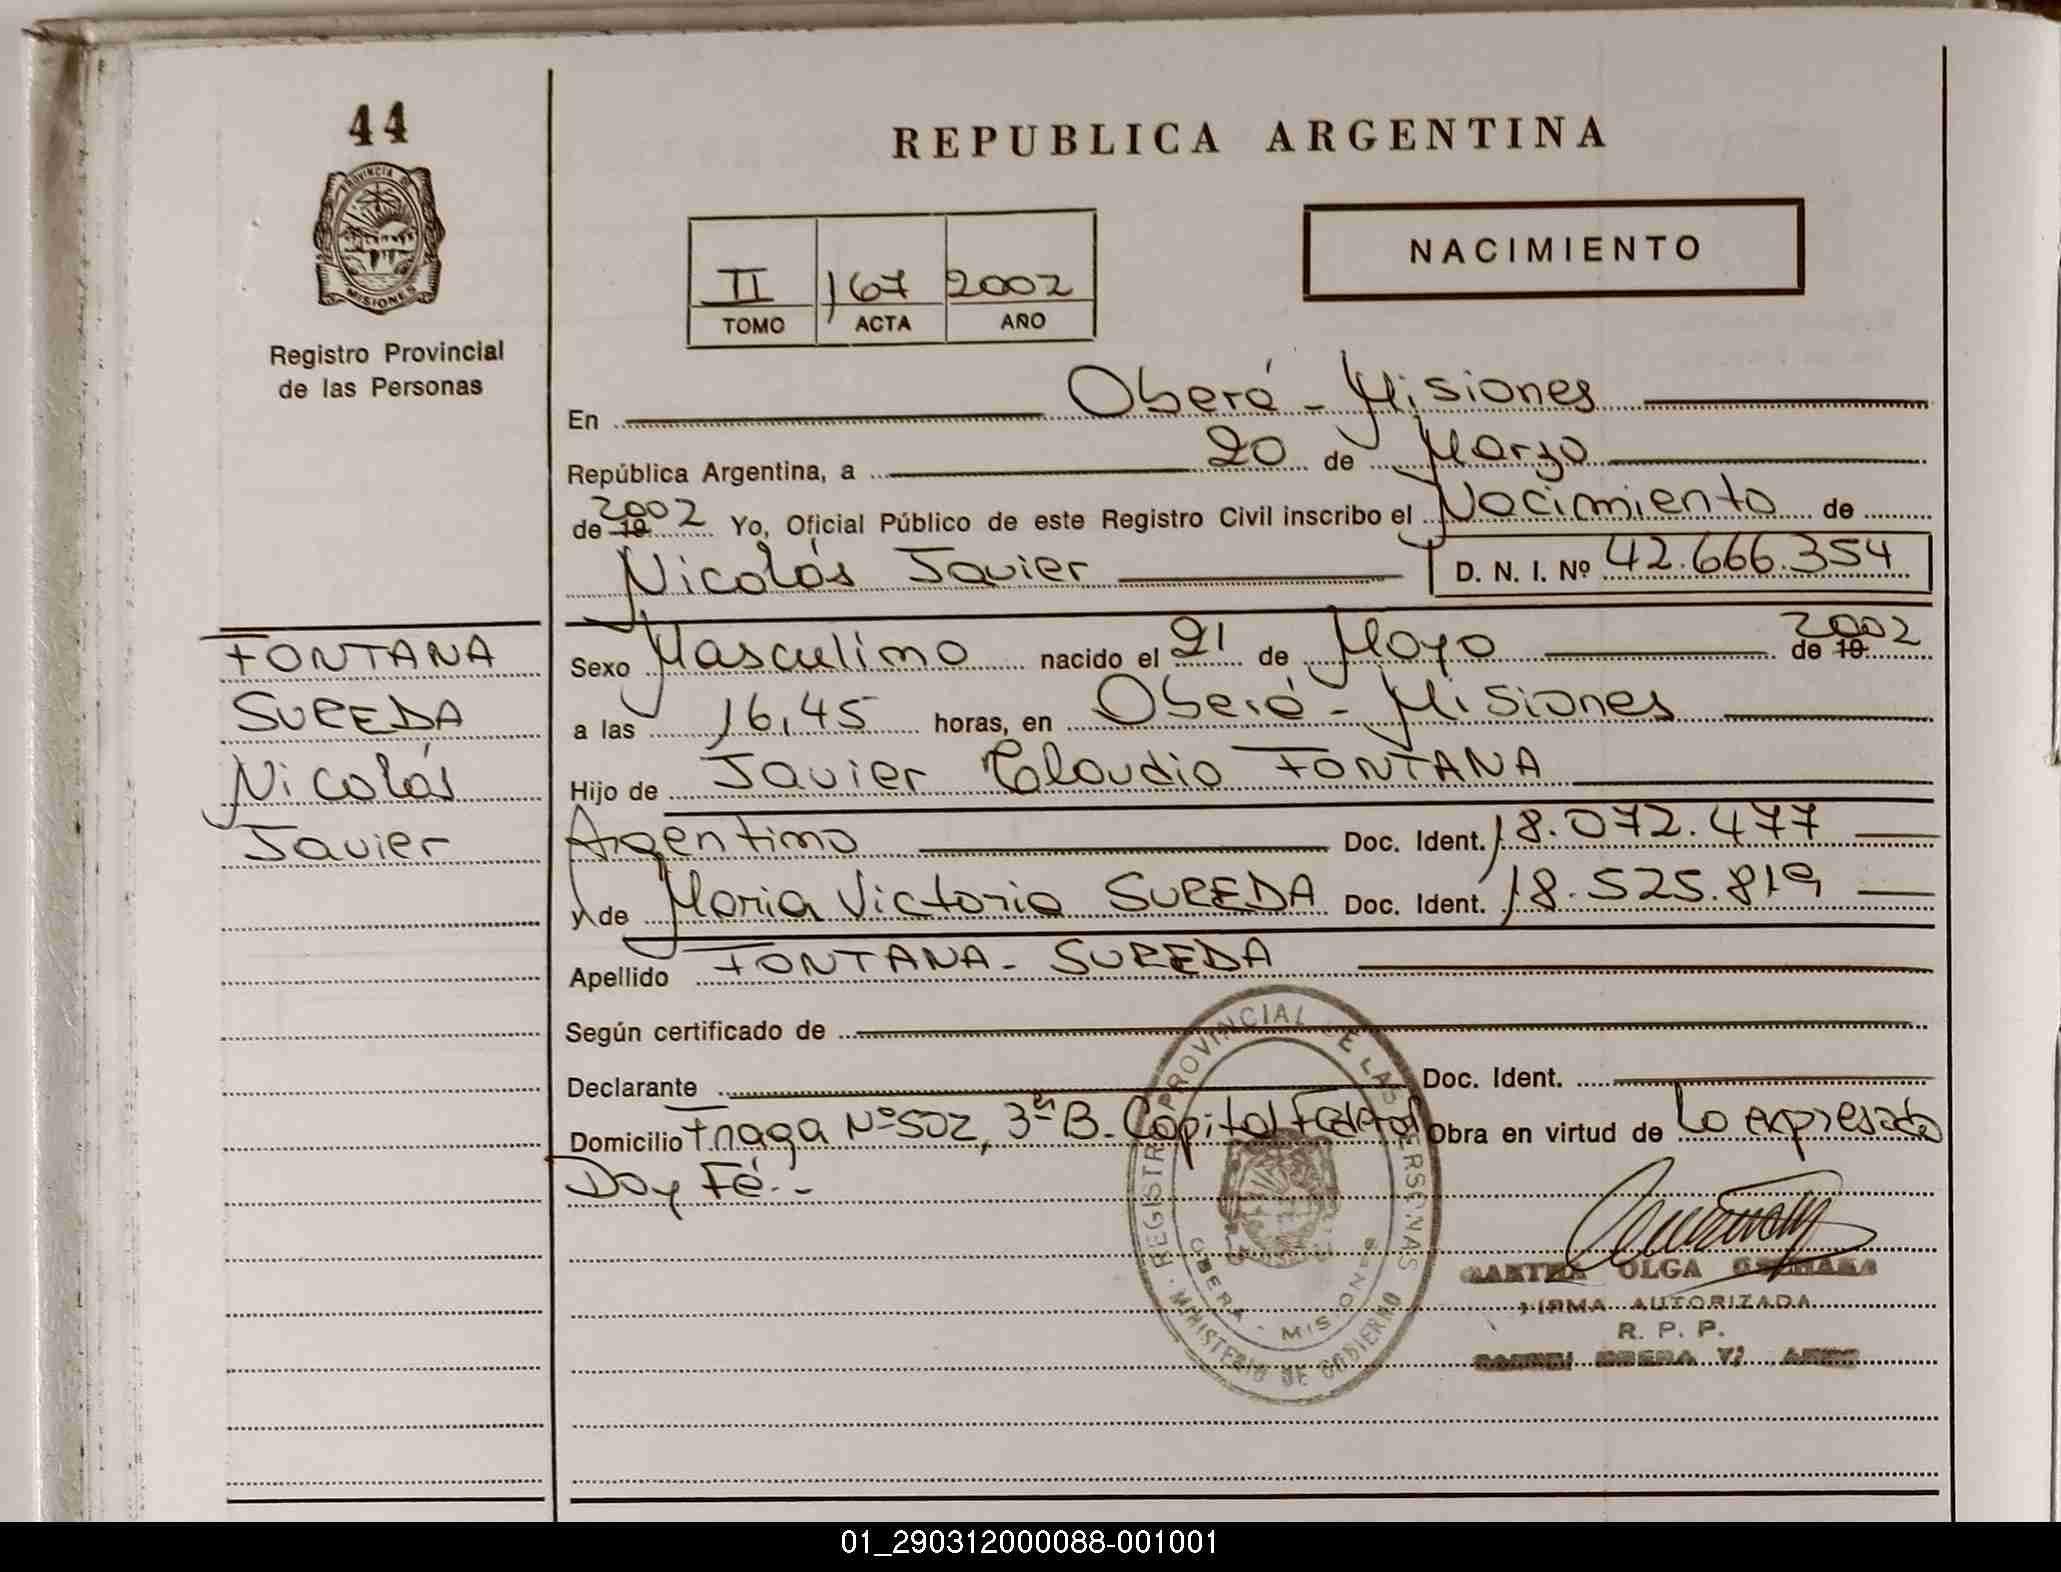 44
PROVINCIA DE
MISIONES
Registro Provincial
de las Personas
REPUBLICA ARGENTINA
NACIMIENTO
II 167 2002
TOMO ACTA AÑO
En Oberá - Misiones
República Argentina, a 20 de Marzo
de 19 2002 Yo, Oficial Público de este Registro Civil inscribo el Nacimiento de
Nicolás Javier D. N. I. Nº 42.666.354
Sexo Masculino nacido el 21 de Mayo de 19 2002
a las 16,45 horas, en Oberá - Misiones
Hijo de Javier Claudio FONTANA
Argentino Doc. Ident. 18.072.477
y de Maria Victoria SUREDA Doc. Ident. 18.525.819
Apellido FONTANA - SUREDA
Según certificado de
Declarante Doc. Ident.
Domicilio Fraga Nº 502, 3º B. Capital Federal Obra en virtud de lo expresado
Doy Fé.-
FONTANA
SUREDA
Nicolás
Javier
REGISTRO PROVINCIAL DE LAS PERSONAS
OBERA - MISIONES
MINISTERIO DE GOBIERNO
OLGA
FIRMA AUTORIZADA
R. P. P.
OBERA
01_290312000088-001001